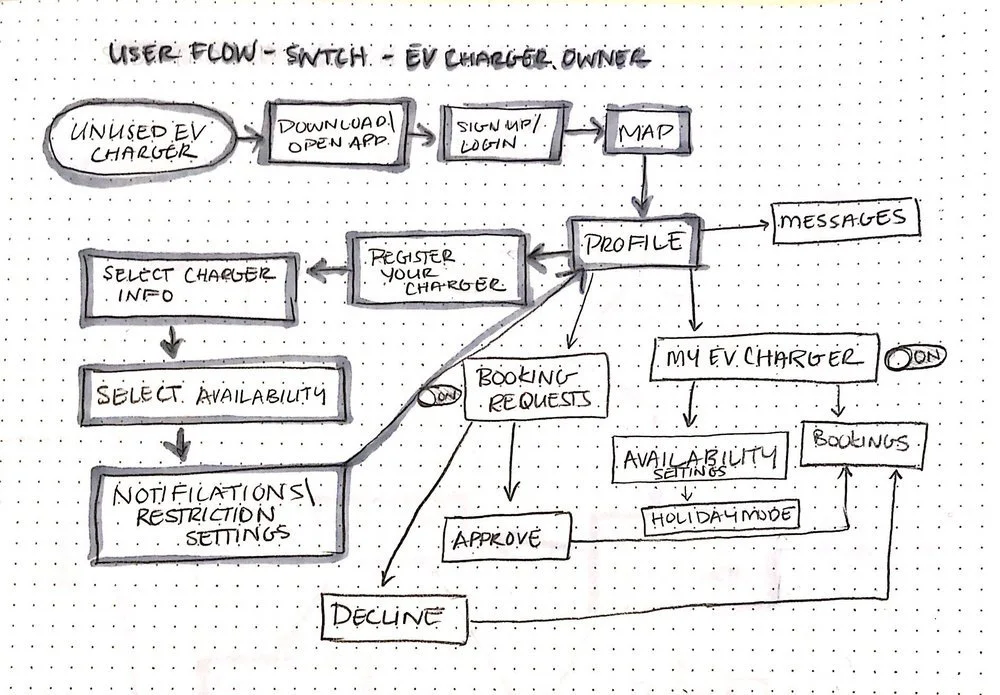 USER FLOW - SWTCH - EV CHARGER OWNER
UNUSED EV
CHARGER
DOWNLOAD\
OPEN APP
SIGN UP/
LOGIN
MAP
PROFILE
MESSAGES
REGISTER
YOUR
CHARGER
SELECT CHARGER
INFO
SELECT AVAILABILITY
NOTIFILATIONS\
RESTRICTION
SETTINGS
ON
BOOKING
REQUESTS
MY EV CHARGER
ON
AVAILABILITY
SETTINGS
HOLIDAY MODE
BOOKINGS
APPROVE
DECLINE